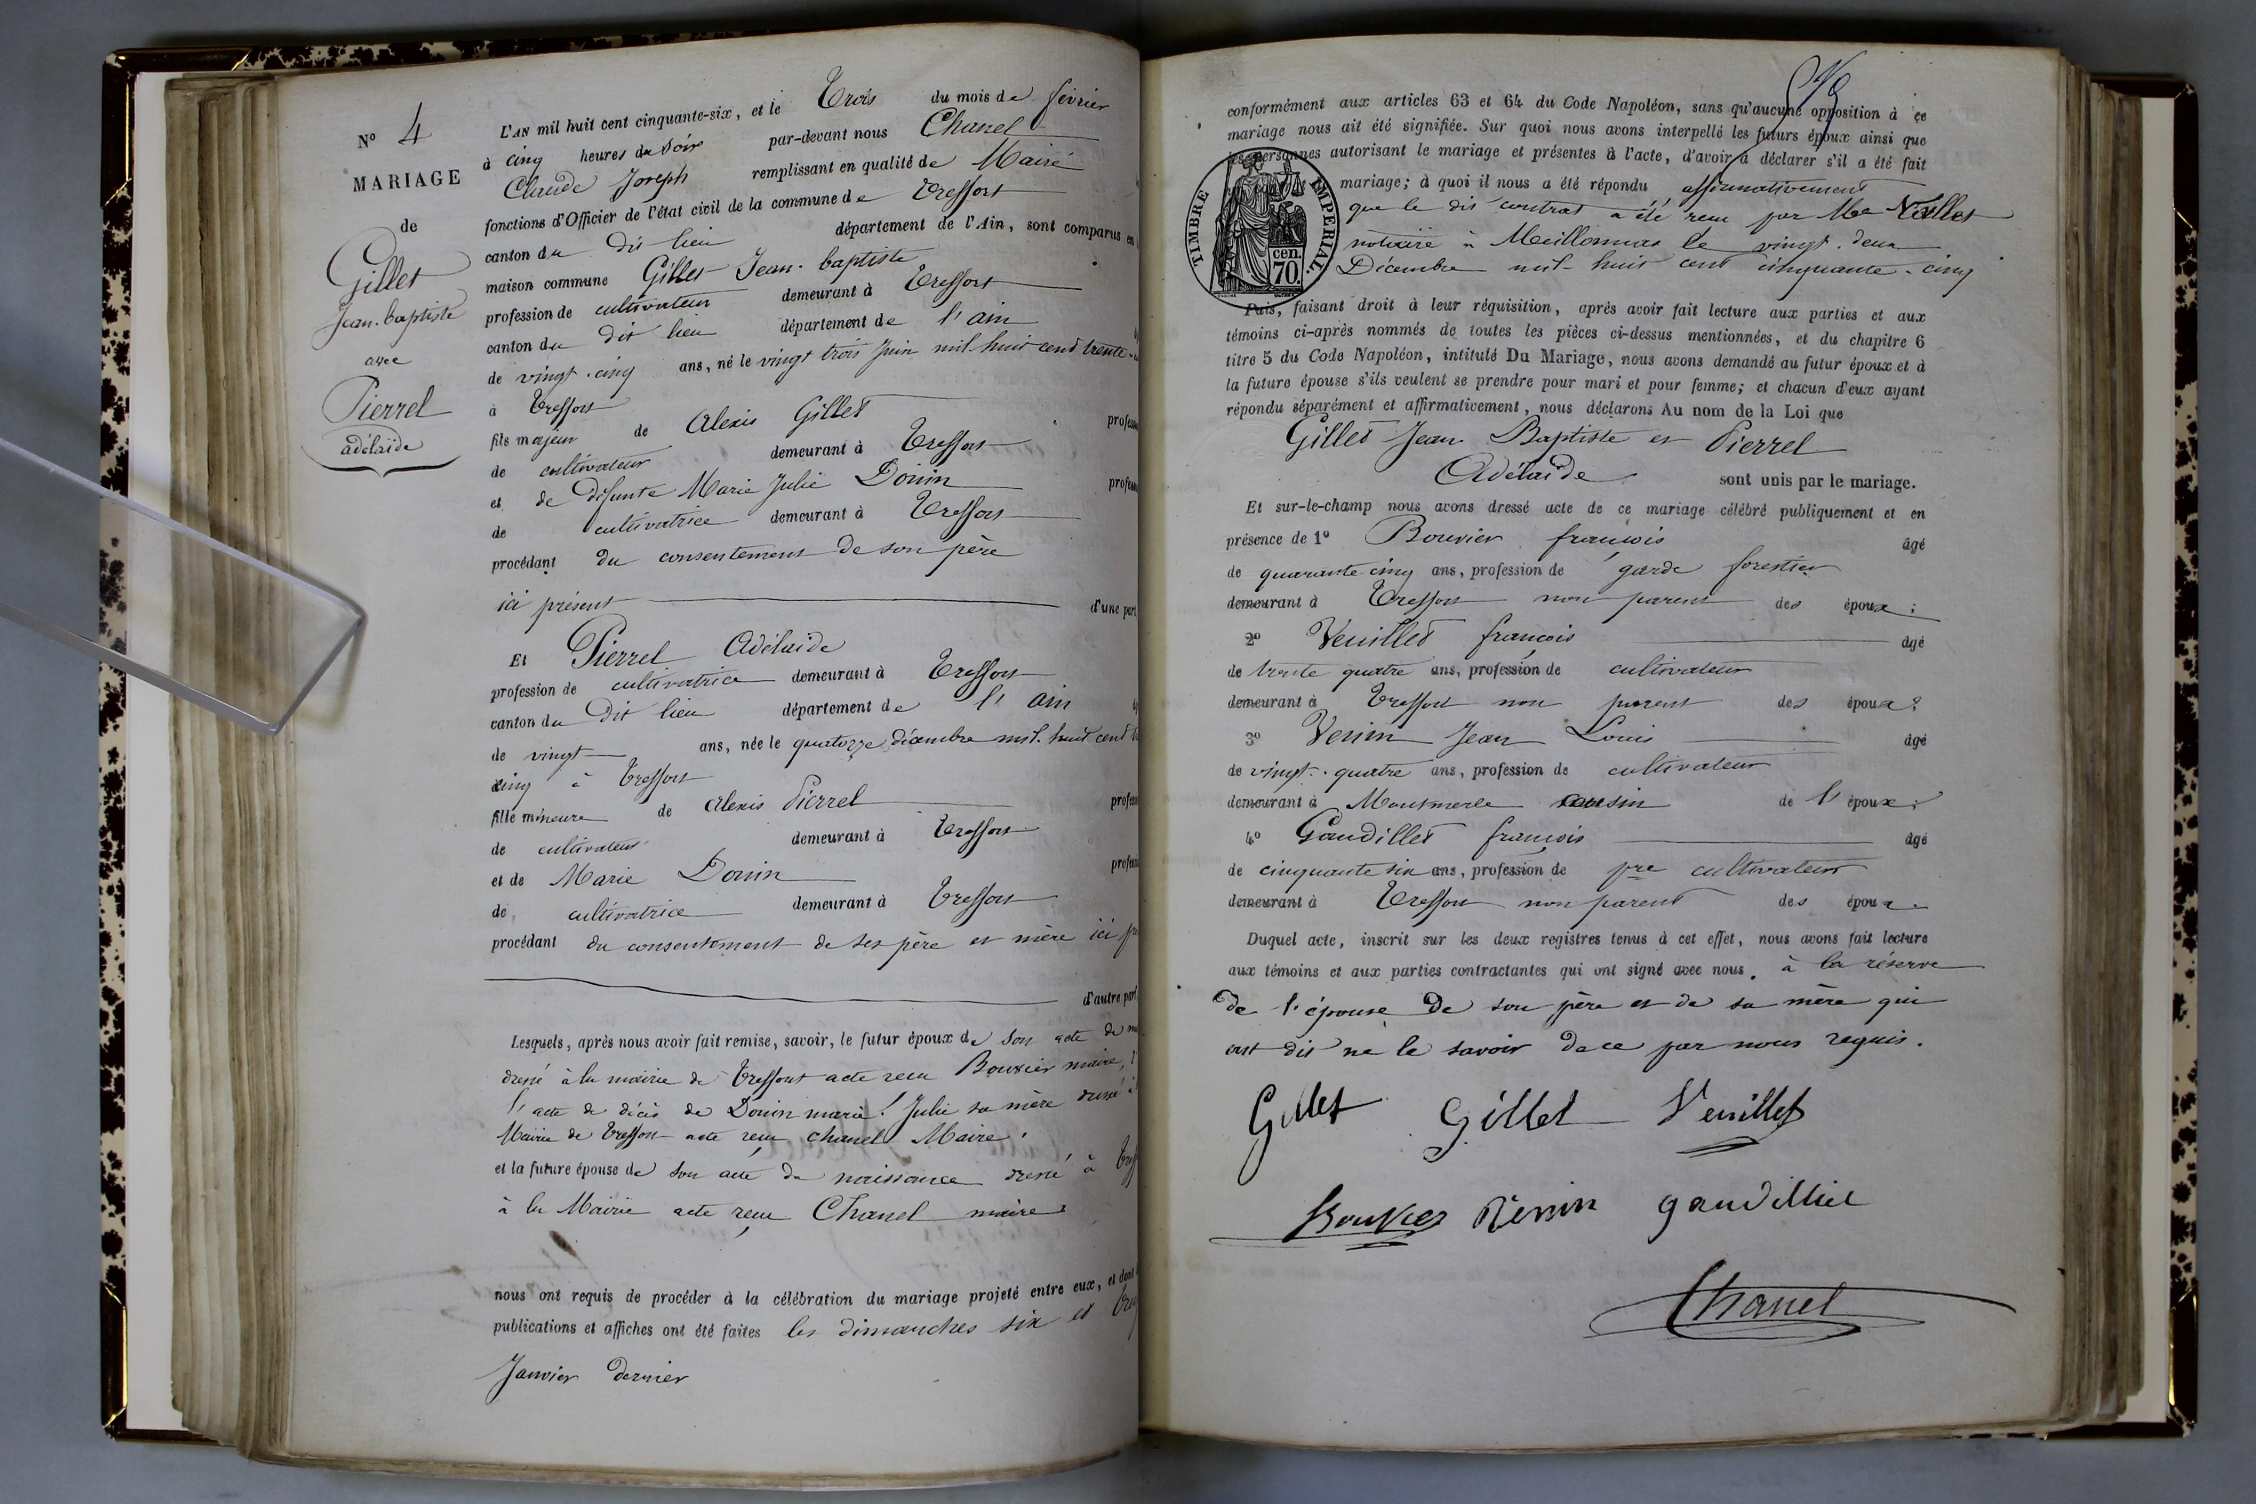 N° 4
MARIAGE
de
Gillet
Jean-baptiste
avec
Pierrel
adélaïde
L'AN mil huit cent cinquante-six, et le Trois du mois de février
à cinq heures du Soir par-devant nous Chanel
Claude Joseph remplissant en qualité de Maire
fonctions d'Officier de l'état civil de la commune de Treffort
canton du dit lieu département de l'Ain, sont comparus en
maison commune Gillet Jean-baptiste
profession de cultivateur demeurant à Treffort
canton du dit lieu département de l'ain
de vingt-cinq ans, né le vingt trois Juin mil huit cent trente
à Treffort
fils majeur de Alexis Gillet
de cultivateur demeurant à Treffort
et de défunte Marie Julie Donin
de cultivatrice demeurant à Treffort
procédant du consentement de son père
ici présent d'une part
Et Pierrel Adélaïde
profession de cultivatrice demeurant à Treffort
canton du dit lieu département de l'ain
de vingt ans, née le quatorze décembre mil huit cent
cinq à Treffort
fille mineure de Alexis Pierrel
de cultivateur demeurant à Treffort
et de Marie Donin
de cultivatrice demeurant à Treffort
procédant du consentement de ses père et mère ici
d'autre part
Lesquels, après nous avoir fait remise, savoir, le futur époux de son acte de
dressé à la mairie de Treffort acte reçu Bouvier maire,
l'acte de décès de Donin marie Julie sa mère dressé à
Mairie de Treffort acte reçu Chanel Maire
et la future épouse de son acte de naissance dressé à
à la Mairie acte reçu Chanel maire
nous ont requis de procéder à la célébration du mariage projeté entre eux, et dont
publications et affiches ont été faites les dimanches six et
Janvier dernier
conformément aux articles 63 et 64 du Code Napoléon, sans qu'aucune opposition à ce
mariage nous ait été signifiée. Sur quoi nous avons interpellé les futurs époux ainsi que
les personnes autorisant le mariage et présentes à l'acte, d'avoir à déclarer s'il a été fait
mariage; à quoi il nous a été répondu affirmativement
que le dit contrat a été reçu par Me
notaire à Meillonnas le vingt-deux
Décembre mil-huit cent cinquante-cinq
TIMBRE IMPERIAL.
cen.
70.
Puis, faisant droit à leur réquisition, après avoir fait lecture aux parties et aux
témoins ci-après nommés de toutes les pièces ci-dessus mentionnées, et du chapitre 6
titre 5 du Code Napoléon, intitulé Du Mariage, nous avons demandé au futur époux et à
la future épouse s'ils veulent se prendre pour mari et pour femme; et chacun d'eux ayant
répondu séparément et affirmativement, nous déclarons Au nom de la Loi que
Gillet Jean Baptiste et Pierrel
Adélaïde sont unis par le mariage.
Et sur-le-champ nous avons dressé acte de ce mariage célébré publiquement et en
présence de 1° Bouvier françois âgé
de quarante cinq ans, profession de garde forestier
demeurant à Treffort non parent des époux;
2° Veuillet françois âgé
de trente quatre ans, profession de cultivateur
demeurant à Treffort non parent des époux;
3° Jean Louis âgé
de vingt-quatre ans, profession de cultivateur
demeurant à Montmerle cousin de l'époux;
4° Gaudillet françois âgé
de cinquante six ans, profession de pre cultivateur
demeurant à Treffort non parent des époux.
Duquel acte, inscrit sur les deux registres tenus à cet effet, nous avons fait lecture
aux témoins et aux parties contractantes qui ont signé avec nous. à la réserve
de l'épouse de son père et de sa mère qui
ont dit ne le savoir de ce par nous requis.
Gillet Gillet Veuillet
Bouvier gaudilliet
Chanel